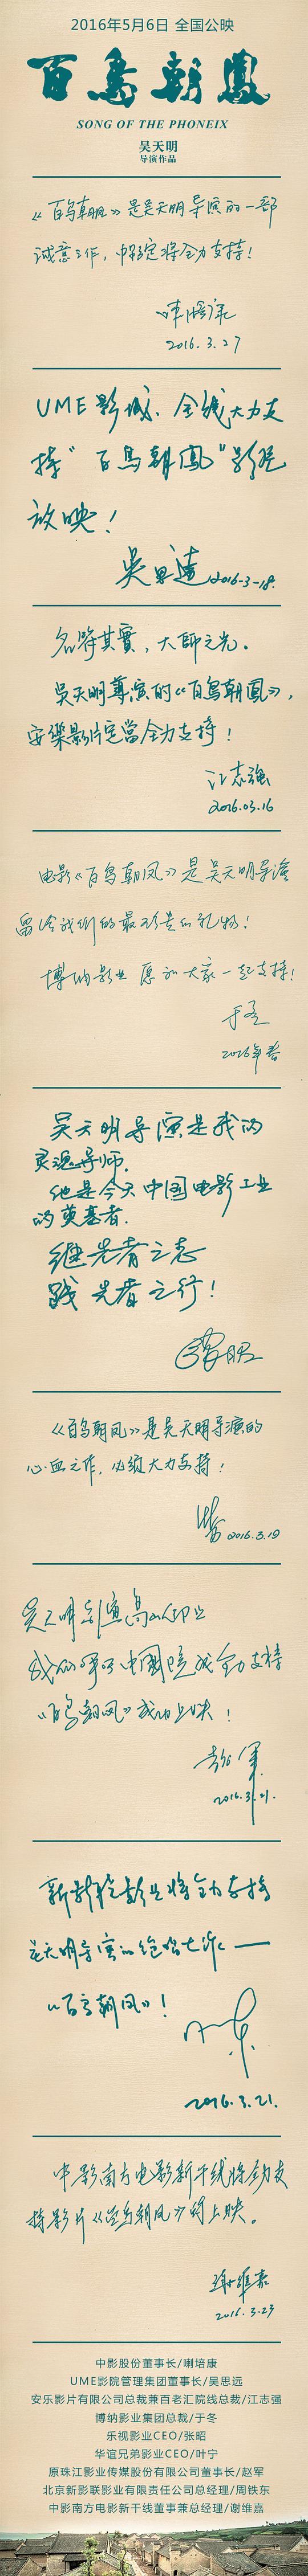 2016年5月6日 全国公映
百鸟朝鳳
SONG OF THE PHONEIX
吴天明
导演作品
《百鸟朝凤》是吴天明导演的一部
诚意之作，中影定将全力支持！
喇培康
2016.3.27
UME影城、全线大力支
持"百鸟朝鳳"影片
放映！
吴思遠 2016-3-18.
名符其實，大師之光。
吴天明導演的《百鸟朝鳳》，
安樂影片定當全力支持！
江志强
2016.03.16
电影《百鸟朝凤》是吴天明导演
留给我们的最珍贵的礼物！
博纳影业愿和大家一起支持！
于冬
2016年春
吴天明导演是我的
灵魂导师.
他是今天中国电影工业
的奠基者.
继先者之志
践先者之行！
张昭
《百鸟朝凤》是吴天明导演的
心血之作，必须大力支持！
2016.3.19
吴天明导演高山仰止
全力支持
《百鸟朝凤》成功上映！
赵军
2016.3.21.
新影联影业将全力支持
吴天明导演的绝唱之作——
《百鸟朝凤》！
2016.3.21.
中影南方电影新干线将全力支
持影片《百鸟朝凤》的上映。
谢维嘉
2016.3.23
中影股份董事长/喇培康
UME影院管理集团董事长/吴思远
安乐影片有限公司总裁兼百老汇院线总裁/江志强
博纳影业集团总裁/于冬
乐视影业CEO/张昭
华谊兄弟影业CEO/叶宁
原珠江影业传媒股份有限公司董事长/赵军
北京新影联影业有限责任公司总经理/周铁东
中影南方电影新干线董事兼总经理/谢维嘉